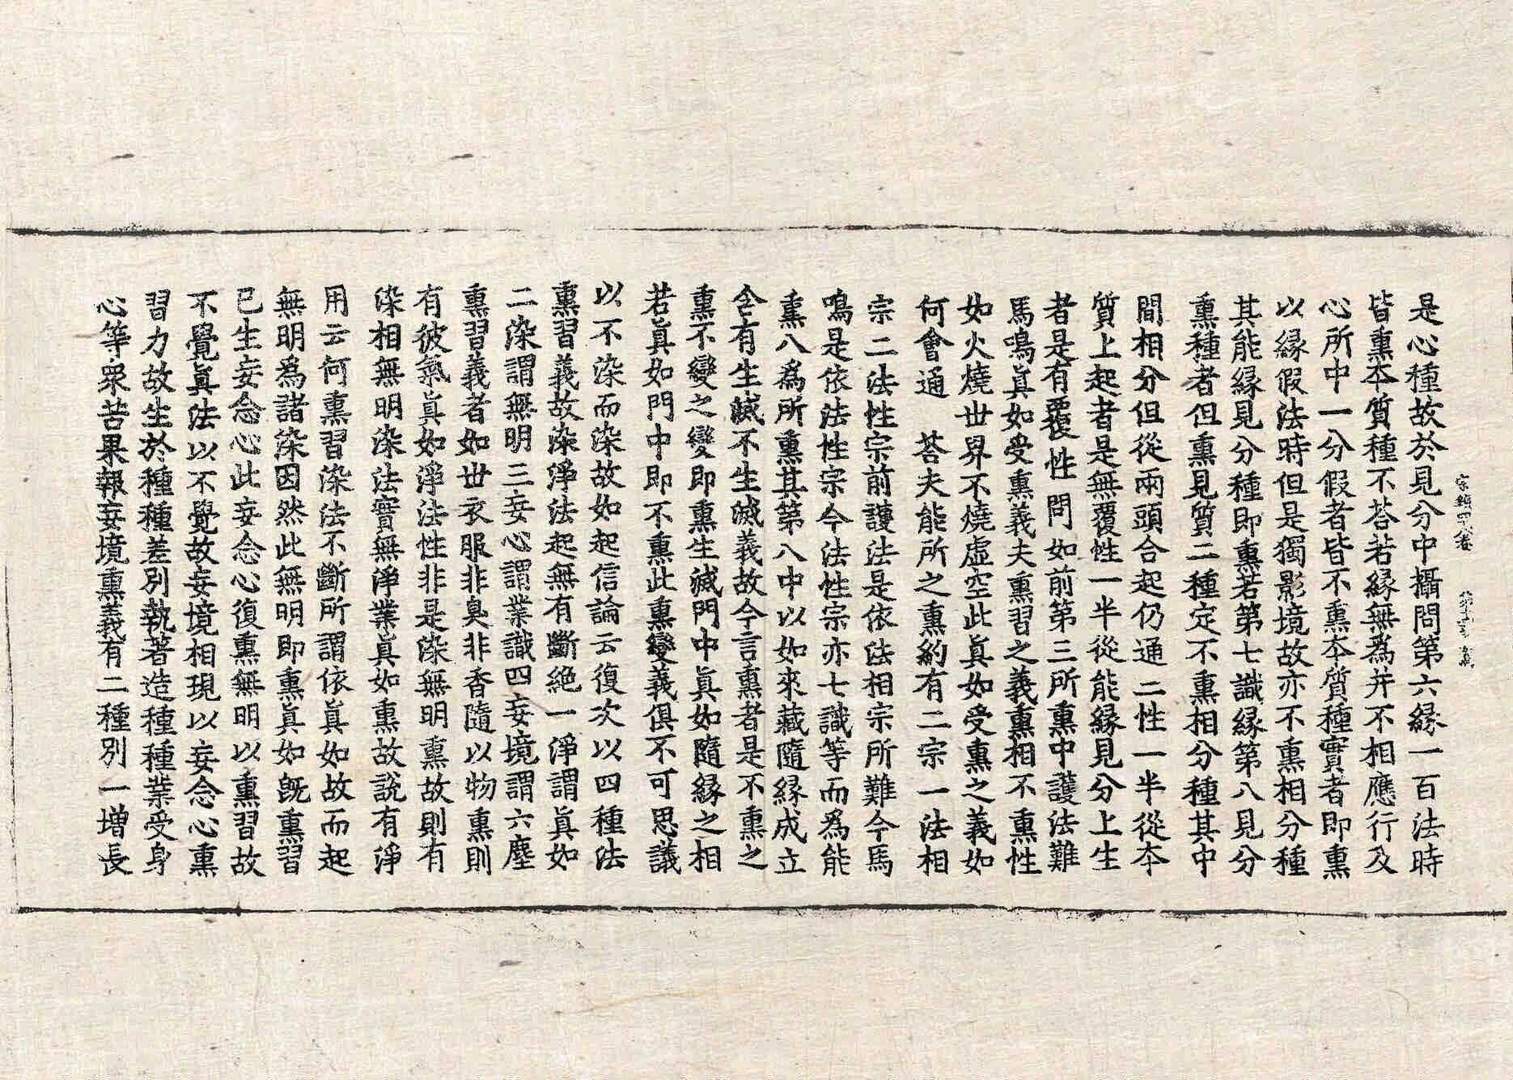 是心種故於見分中攝問第六緣一百法時
皆熏本質種不荅若緣無為并不相應行及
心所中一分假者皆不熏本質種實者即熏
以緣假法時但是獨影境故亦不熏相分種
其能緣見分種即熏若第七識緣第八見分
熏種者但熏見質二種定不熏相分種其中
間相分但從兩頭合起仍通二性一半從本
質上起者是無覆性一半從能緣見分上生
者是有覆性問如前第三所熏中護法難
馬鳴真如受熏義夫熏習之義熏相不熏性
如火燒世界不燒虛空此真如受熏之義如
何會通　荅夫能所之熏約有二宗一法相
宗二法性宗前護法是依法相宗所難今馬
鳴是依法性宗今法性宗亦七識等而為能
熏八為所熏其第八中以如來藏隨緣成立
含有生滅不生滅義故今言熏者是不熏之
熏不變之變即熏生滅門中真如隨緣之相
若真如門中即不熏此熏變義俱不可思議
以不染而染故如起信論云復次以四種法
熏習義故染淨法起無有斷絕一淨謂真如
二染謂無明三妄心謂業識四妄境謂六塵
熏習義者如世衣服非臭非香隨以物熏則
有彼氣真如淨法性非是染無明熏故則有
染相無明染法實無淨業真如熏故說有淨
用云何熏習染法不斷所謂依真如故而起
無明為諸染因然此無明即熏真如旣熏習
已生妄念心此妄念心復熏無明以熏習故
不覺真法以不覺故妄境相現以妄念心熏
習力故生於種種差別執著造種種業受身
心等眾苦果報妄境熏義有二種別一增長